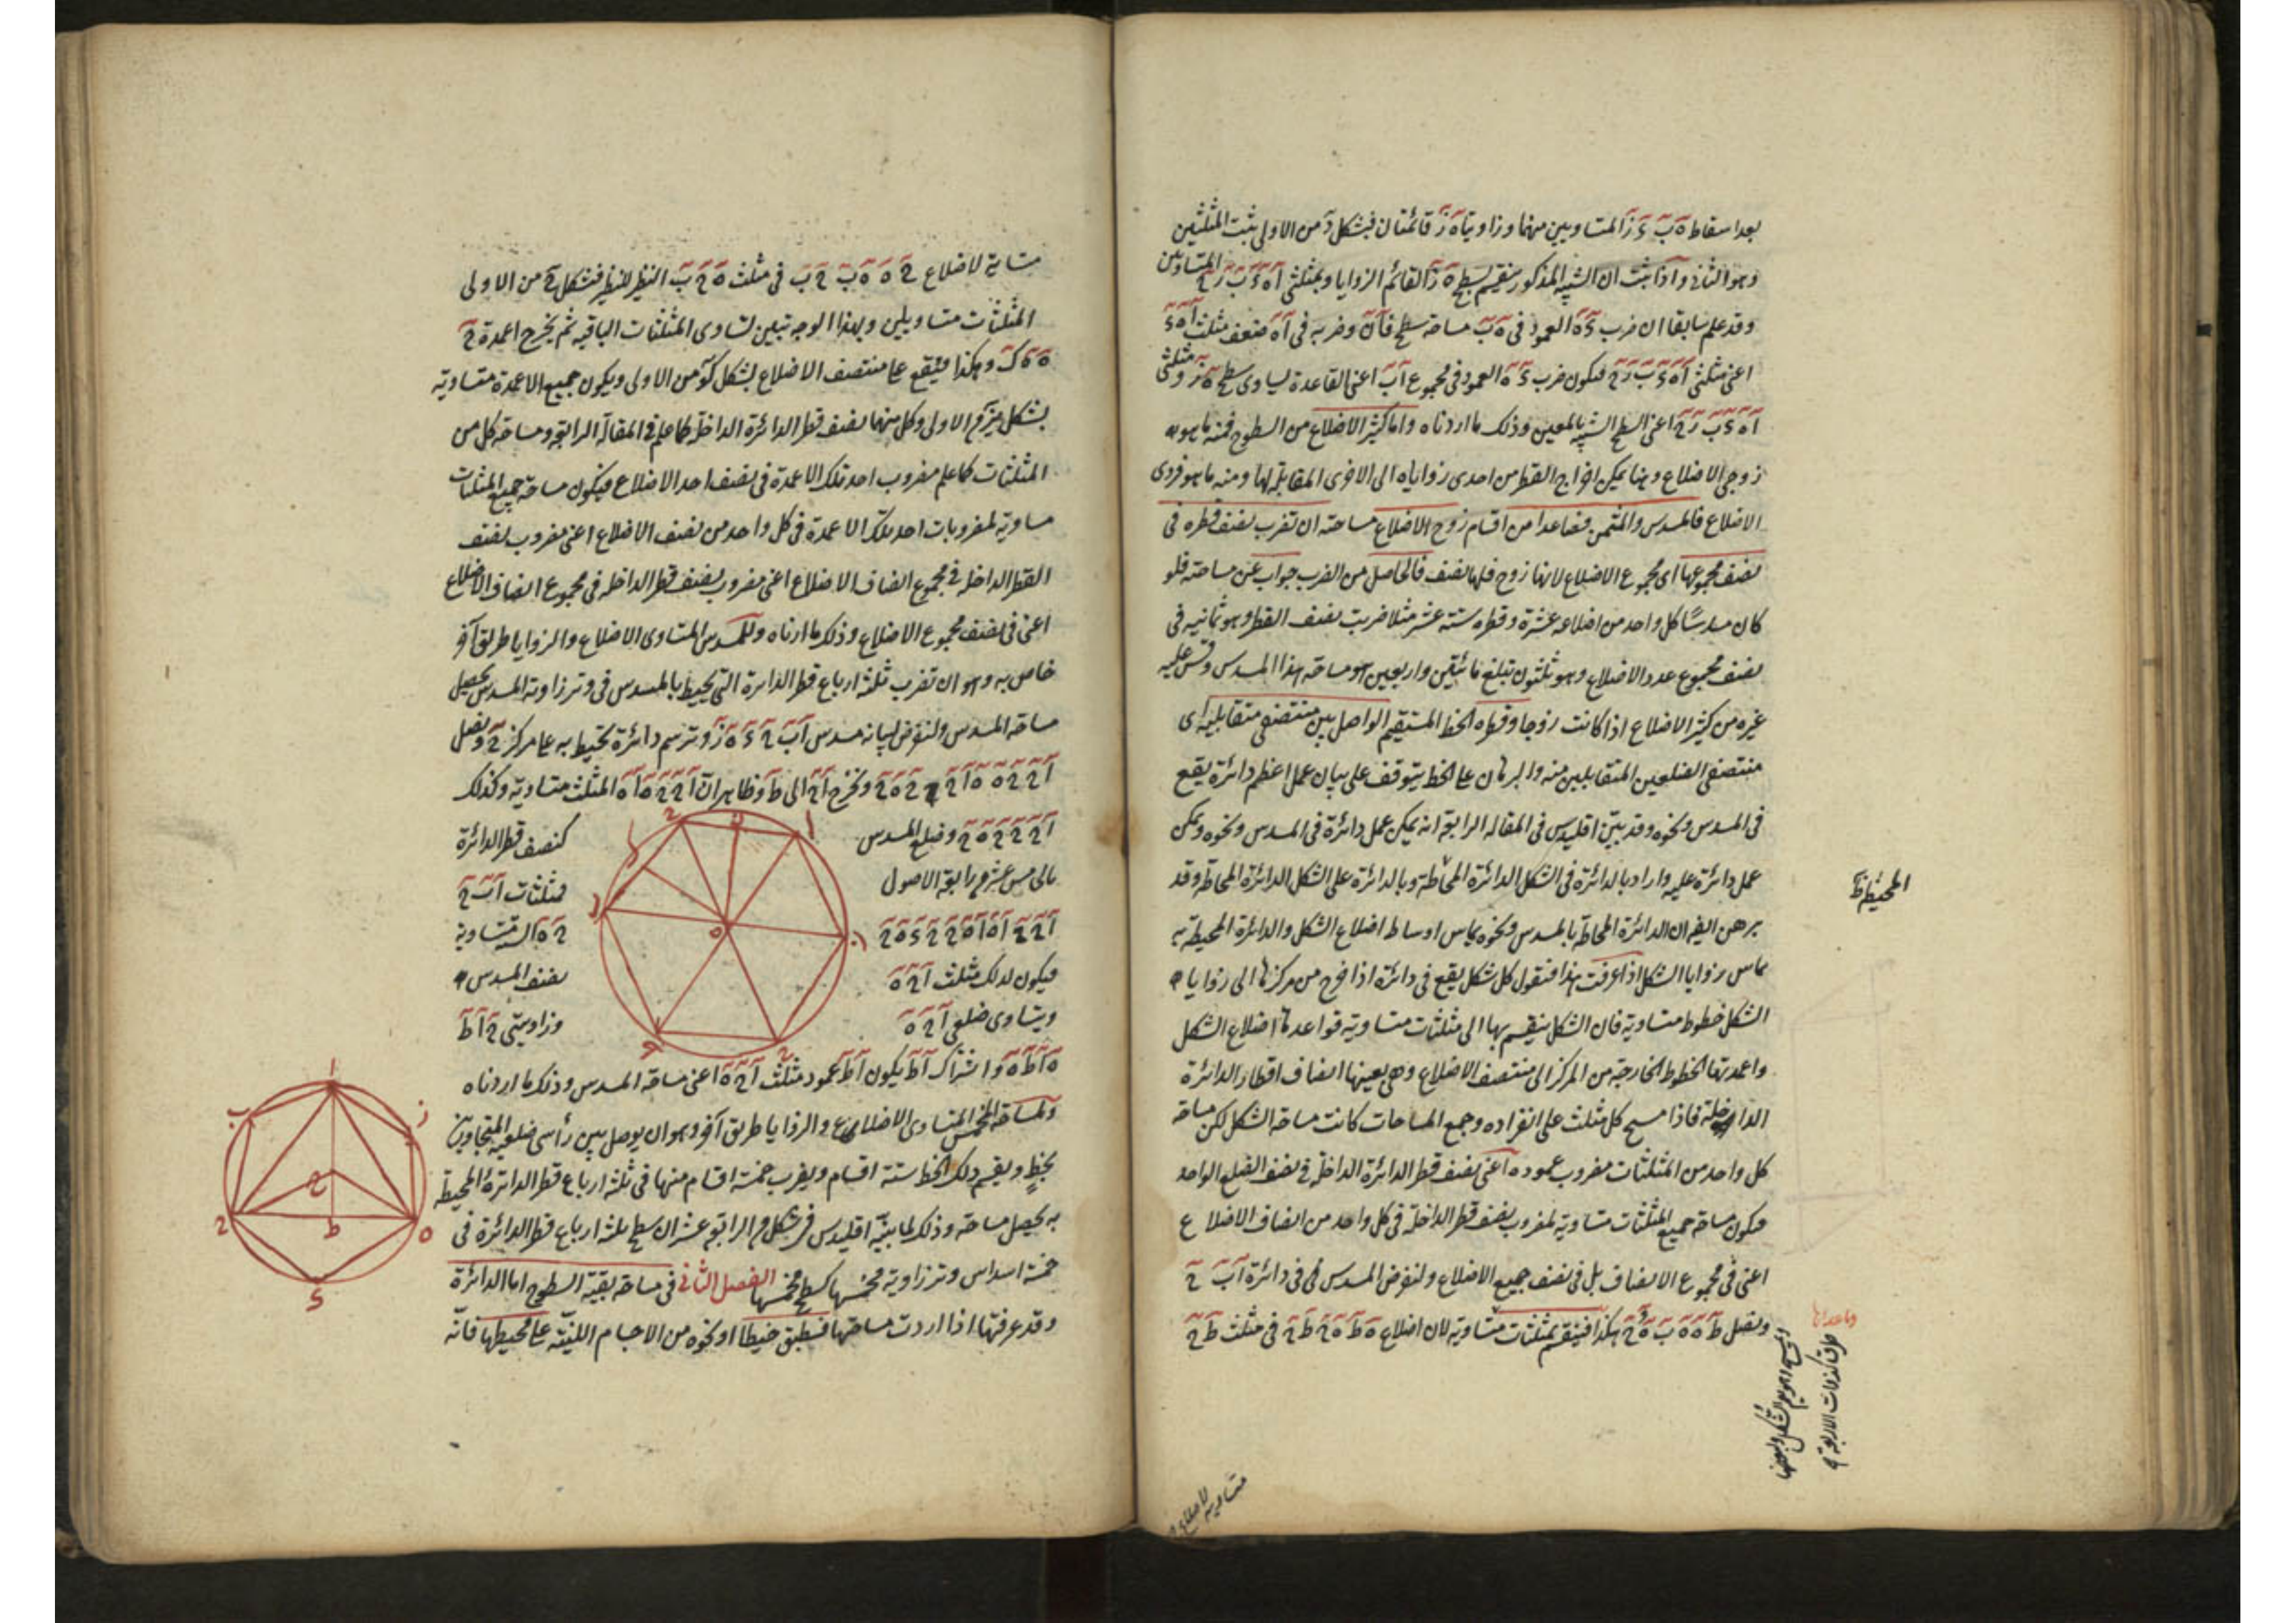 بعد اسقاط ه ب ء ز المتساويين منهما وزاويتا ه ز قائمتان فبشكل د من الاولى يثبت المثلثين
المتساويين
وهو الثانى واذا ثبت ان الشبيه المذكور ينقسم بسطح ه ز القائم الزوايا وبمثلثى ا ه ء ب ز ح
وقد علم سابقا ان ضرب ء ه العمود فى ه ب مساحة سطح وضربه فى ا ه ضعف مثلث ا ه ء
اعنى مثلثى ا ه ء ب ز ح فيكون ضرب ء ه العمود فى مجموع ا ب اعنى القاعدة يساوى سطح ه ز ومثلثى
ا ه ء ب ز ح اعنى السطح الشبيه بالمعين وذلك ما اردناه واما كثير الاضلاع من السطوح فمنه ما هو
زوجى الاضلاع وهنا يمكن اخراج القطر من احدى زواياه الى الاخرى المقابلة لها ومنه ما هو فردى
الاضلاع فالمسدس والمثمن فصاعدا من اقسام زوج الاضلاع مساحته ان تضرب نصف قطره فى
نصف مجموعها اى مجموع الاضلاع لانها زوج فلها نصف فالحاصل من الضرب جواب عن مساحته فلو
كان مسدسا كل واحد من اضلاعه عشرة وقطره ستة عشر مثلا ضربت نصف القطر وهو ثمانيه فى
نصف مجموع عدد الاضلاع وهو ثلثون تبلغ مائتين واربعين هو مساحة هذا المسدس وقس عليه
غيره من كثير الاضلاع اذا كانت زوجا وقطره الخط المستقيم الواصل بين منتصفى متقابليه اى
منتصفى الضلعين المتقابلين منه والبرهان على الخط يتوقف على بيان عمل اعظم دائرة يقع
فى المسدس ونحوه وقد بين اقليدس فى المقاله الرابعة انه يمكن عمل دائرة فى المسدس ونحوه ويمكن
عمل دائرة عليه واراد بالدائرة فى الشكل الدائرة المحاطة وبالدائرة على الشكل الدائرة المحاطة وقد
المحيطة ظ
برهن ايضا ان الدائرة المحاطة بالمسدس ونحوه يماس اوساط اضلاع الشكل والدائرة المحيطة به
يماس زوايا الشكل اذا عرفت هذا فنقول كل شكل يقع فى دائرة اذا خرج من مركزها الى زوايا
الشكل خطوط متساوية فان الشكل ينقسم بها الى مثلثات متساوية قواعدها اضلاع الشكل
واعمدتها الخطوط الخارجة من المركز الى منتصف الاضلاع وهى بعينها انصاف اقطار الدائرة
الداخلة فاذا مسح كل مثلث على انفراده وجمع المساحات كانت مساحة الشكل لكن مساحة
كل واحد من المثلثات مضروب عموده اعنى نصف قطر الدائرة الداخلة فى نصف الضلع الواحد
فيكون مساحة جميع المثلثات متساوية لمضروب نصف قطر الداخلة فى كل واحد من انصاف الاضلاع
اعنى فى مجموع الانصاف بل فى نصف جميع الاضلاع ولنفرض المسدس فى دائرة ا ب ح
ونصل ط ه ه ب ه ح هكذا فينقسم بمثلثات متساوية لان اضلاع ه ط ه ح ط ح فى مثلث ط ح
متساوية لاضلاع
متساوية لاضلاع ح ه ه ب ح ب فى مثلث ه ح ب النظير للنظير فبشكل ح من الاولى
المثلثات متساويين وبهذا الوجه تبين تساوى المثلثات الباقيه ثم يخرج اعمدة ح
ه ه ك وهكذا فيقع على منتصف الاضلاع بشكل كو من الاولى ويكون جميع الاعمدة متساوية
بشكل من الاولى وكل منها نصف قطر الدائرة الداخلة كما علم فى المقالة الرابعة ومساحة كل من
المثلثات كما علم مضروب احد تلك الاعمدة فى نصف احد الاضلاع فيكون مساحة جميع المثلثات
مساوية لمضروبات احد تلك الاعمدة فى كل واحد من نصف الاضلاع اعنى مضروب نصف
القطر الداخلة فى مجموع انصاف الاضلاع اعنى مضروب نصف قطر الداخله فى مجموع انصاف الاضلاع
اعنى فى نصف مجموع الاضلاع وذلك ما اردناه وللمسدس المتساوى الاضلاع والزوايا طريق آخر
خاص به وهو ان تضرب ثلثة ارباع قطر الدائرة التى يحيط بالمسدس فى وتر زاوية المسدس يحصل
مساحة المسدس ولنفرض لبيانه مسدس ا ب ح ء ه ز وترسم دائرة تحيط به على مركز ح ونصل
ا ح ح ه ه ا ح ح ه ح ونخرج ا ح الى ط وظاهر ان ا ح ح ه ا ه المثلث متساوية وكذلك
ا ح ح ح ه ح وضلع المسدس كنصف قطر الدائرة
بالخامس عشر من رابعة الاصول فمثلثات ا ب ح
ح ه الستة متساوية
فيكون لذلك مثلث ا ح ه نصف المسدس
ويتساوى ضلعى ا ح ه وزاويتى ح ا ط
ه ا ط واشتراك ا ط يكون ا ط عمود مثلث ا ح ه اعنى مساحة المسدس وذلك ما اردناه
ولمساحة المخمس المتساوى الاضلاع والزوايا طريق آخر وهو ان يوصل بين رأسى ضلعيه المتجاورين
بخط ويقسم ذلك الخط ستة اقسام ويضرب خمسة اقسام منها فى ثلثة ارباع قطر الدائرة المحيطة
به يحصل مساحته وذلك لما بينه اقليدس فى شكل من الرابعة عشر ان سطح ثلثة ارباع قطر الدائرة فى
خمسة اسداس وتر زاوية مخمسها كسطح مخمسها الفصل الثانى فى مساحة بقية السطوح اما الدائرة
وقد عرفتها اذا اردت مساحتها فطبق خيطا او نحوه من الاجسام اللينة على محيطها فانه